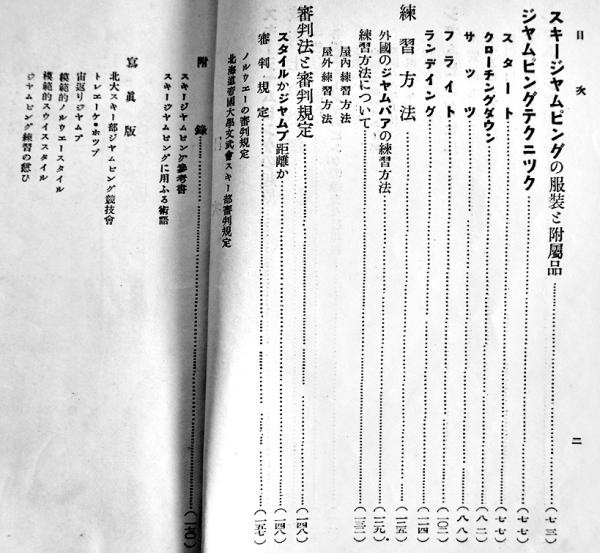 目次
二
スキージヤムピングの服裝と附屬品……(七三)
ジヤムピングテクニツク……(七七)
スタート……(七七)
クローチングダウン……(八二)
サッツ……(八八)
フライト……(一〇二)
ランデイング……(一一四)
練習方法……(一二五)
外國のジヤムパアの練習方法……(一二九)
練習方法について……(一三二)
屋内練習方法
屋外練習方法
審判法と審判規定……(一四八)
スタイルかジヤムプ距離か……(一四八)
審判規定……(一五七)
ノルウエーの審判規定
北海道帝國大學文武會スキー部審判規定
附錄……(一七〇)
スキージヤムピング參考書
スキージヤムピングに用ふる術語
寫眞版
北大スキー部ジヤムピング競技會
トレエーケ・ホツプ
宙返りジヤムプ
模範的ノルウエースタイル
模範的スウイススタイル
ジヤムピング練習の憩ひ